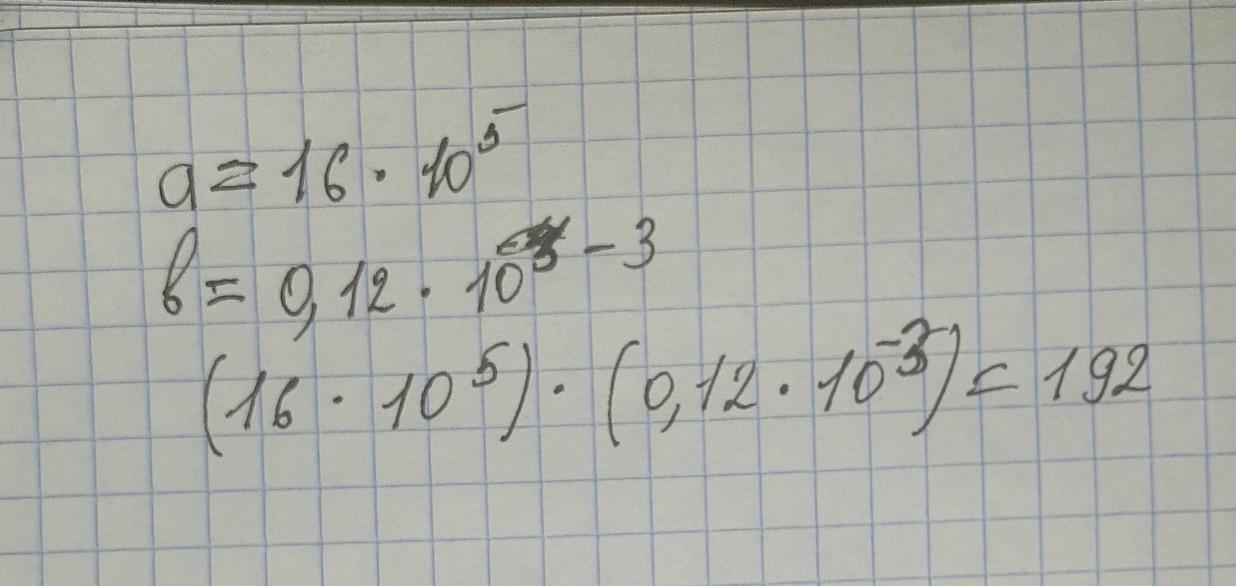 a = 16 · 10⁵
b = 0,12 · 10⁻³
(16 · 10⁵) · (0,12 · 10⁻³) = 192